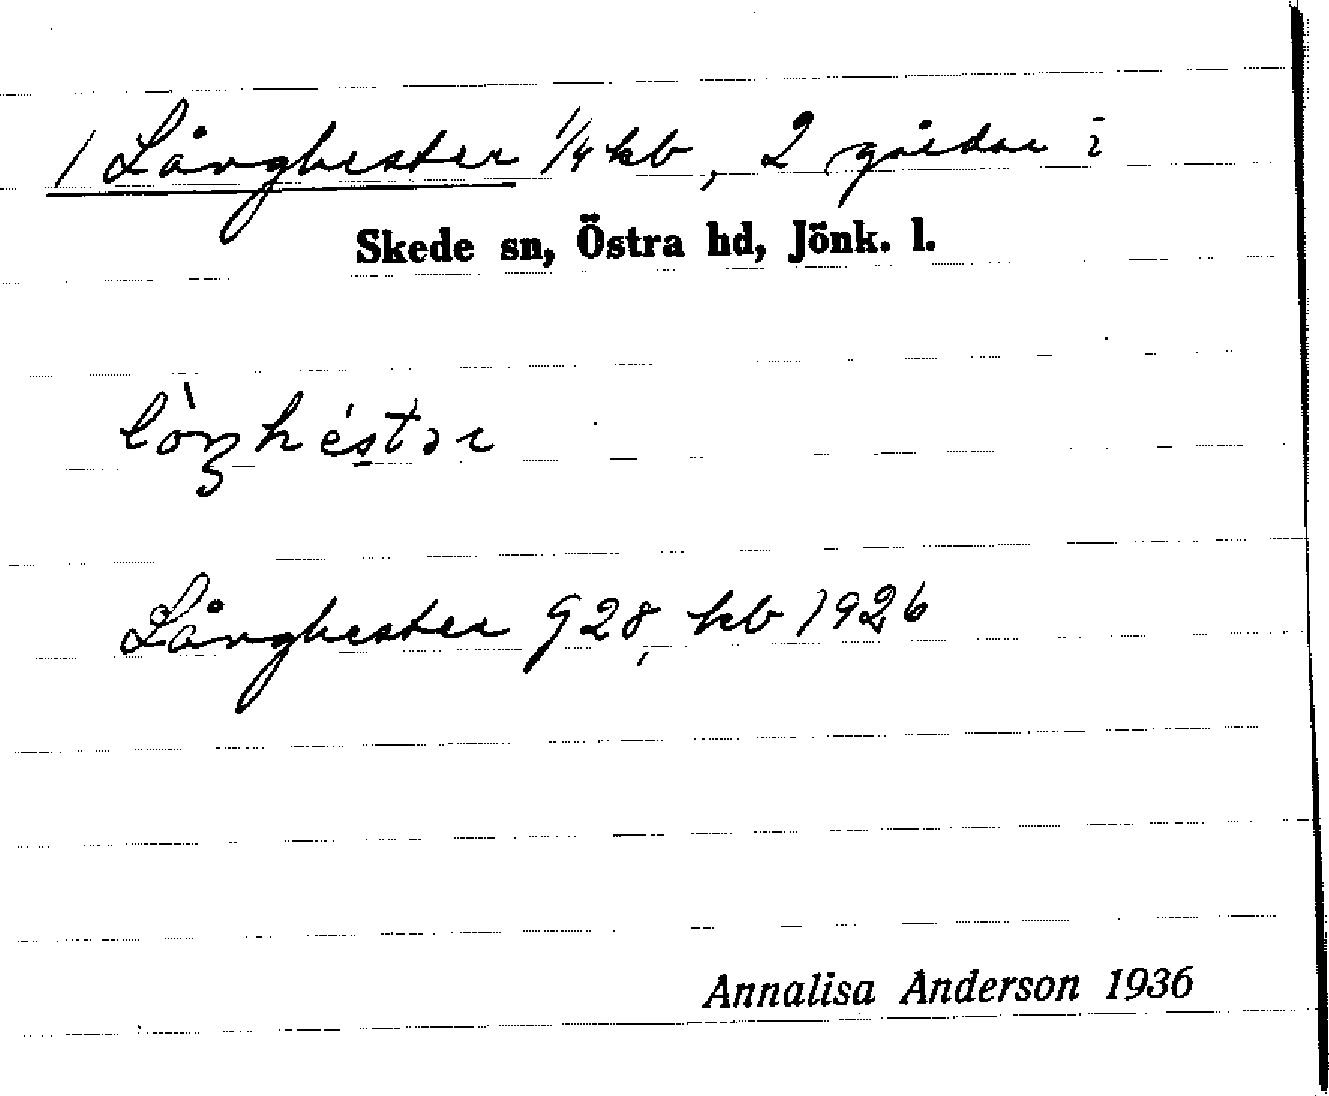 1 Långhester 1/4 kb, 2 gårdar i
Skede sn, Östra hd, Jönk. l.
Långhester G28, kb 1926
Annalisa Anderson 1936